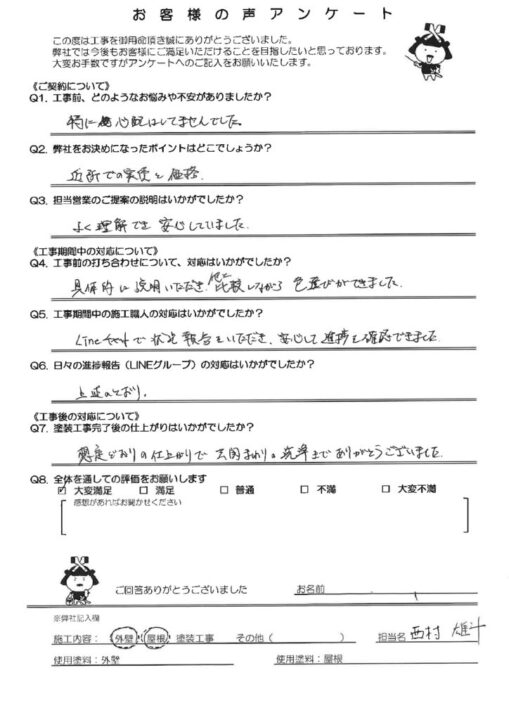 お客様の声アンケート
この度は工事を御用命頂き誠にありがとうございました。
弊社では今後もお客様にご満足いただけることを目指したいと思っております。
大変お手数ですがアンケートへのご記入をお願いいたします。
《ご契約について》
Q1. 工事前、どのようなお悩みや不安がありましたか？
特に心配はしてませんでした。
Q2. 弊社をお決めになったポイントはどこでしょうか？
近所での実績と価格.
Q3. 担当営業のご提案の説明はいかがでしたか？
よく理解でき 安心していました.
《工事期間中の対応について》
Q4. 工事前の打ち合わせについて、対応はいかがでしたか？
具体的に説明いただき、比較しながら 色選びができました.
Q5. 工事期間中の施工職人の対応はいかがでしたか？
Lineチャットで状況報告をいただき、安心して進捗を確認できました
Q6. 日々の進捗報告（LINEグループ）の対応はいかがでしたか？
上述のとおり.
《工事後の対応について》
Q7. 塗装工事完了後の仕上がりはいかがでしたか？
想定どおりの仕上がりで 玄関まわりの洗浄までありがとうございました.
Q8. 全体を通しての評価をお願いします
☑ 大変満足 □ 満足 □ 普通 □ 不満 □ 大変不満
感想があればお聞かせください
ご回答ありがとうございました お名前
※弊社記入欄
施工内容： 外壁・屋根 塗装工事 その他（ ） 担当名 西村 雄斗
使用塗料：外壁 使用塗料：屋根